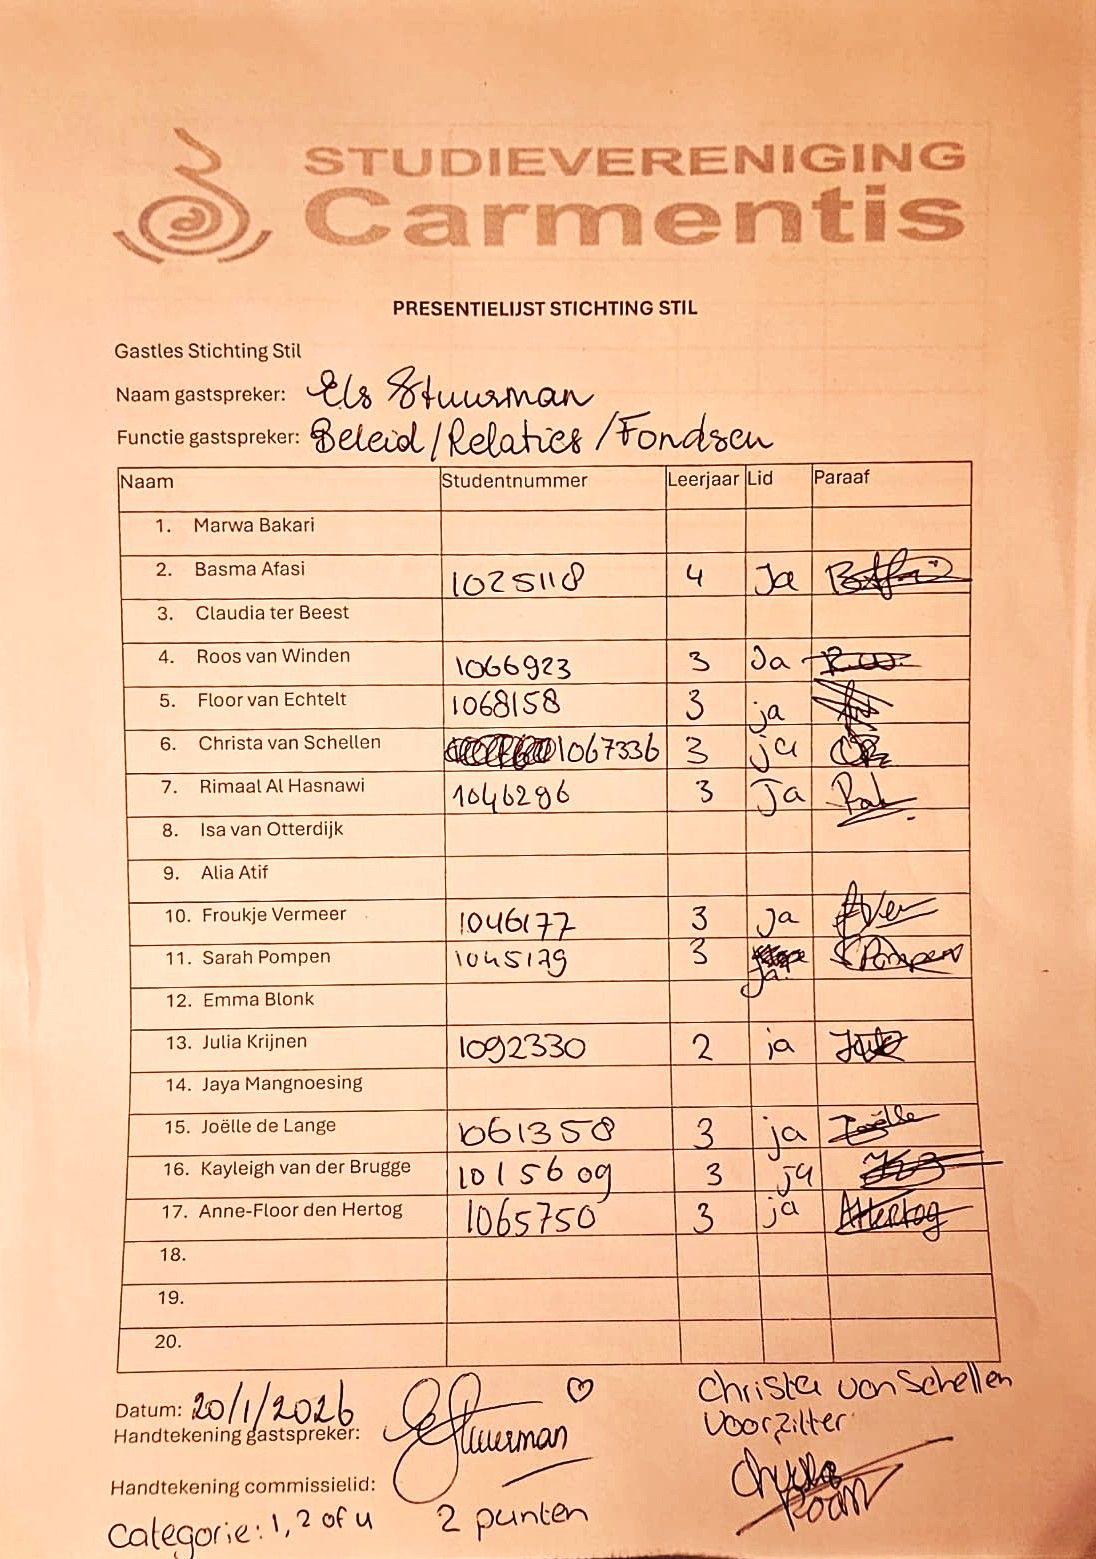 STUDIEVERENIGING
Carmentis
PRESENTIELIJST STICHTING STIL
Gastles Stichting Stil
Naam gastspreker: Els Stuurman
Functie gastspreker: Beleid/Relaties/Fondsen
Naam Studentnummer Leerjaar Lid Paraaf
1. Marwa Bakari
2. Basma Afasi 1025118 4 Ja
3. Claudia ter Beest
4. Roos van Winden 1066923 3 Ja
5. Floor van Echtelt 1068158 3 ja
6. Christa van Schellen 1067336 3 ja
7. Rimaal Al Hasnawi 1046286 3 Ja
8. Isa van Otterdijk
9. Alia Atif
10. Froukje Vermeer 1046177 3 Ja
11. Sarah Pompen 1045179 3 ja. SPompen
12. Emma Blonk
13. Julia Krijnen 1092330 2 ja
14. Jaya Mangnoesing
15. Joëlle de Lange 1061358 3 ja Joëlle
16. Kayleigh van der Brugge 1015609 3 ja
17. Anne-Floor den Hertog 1065750 3 ja AHertog
18.
19.
20.
Datum: 20/1/2026
Handtekening gastspreker: Stuurman
Christa van Schellen
voorzitter
Handtekening commissielid:
Categorie: 1, 2 of 4 2 punten